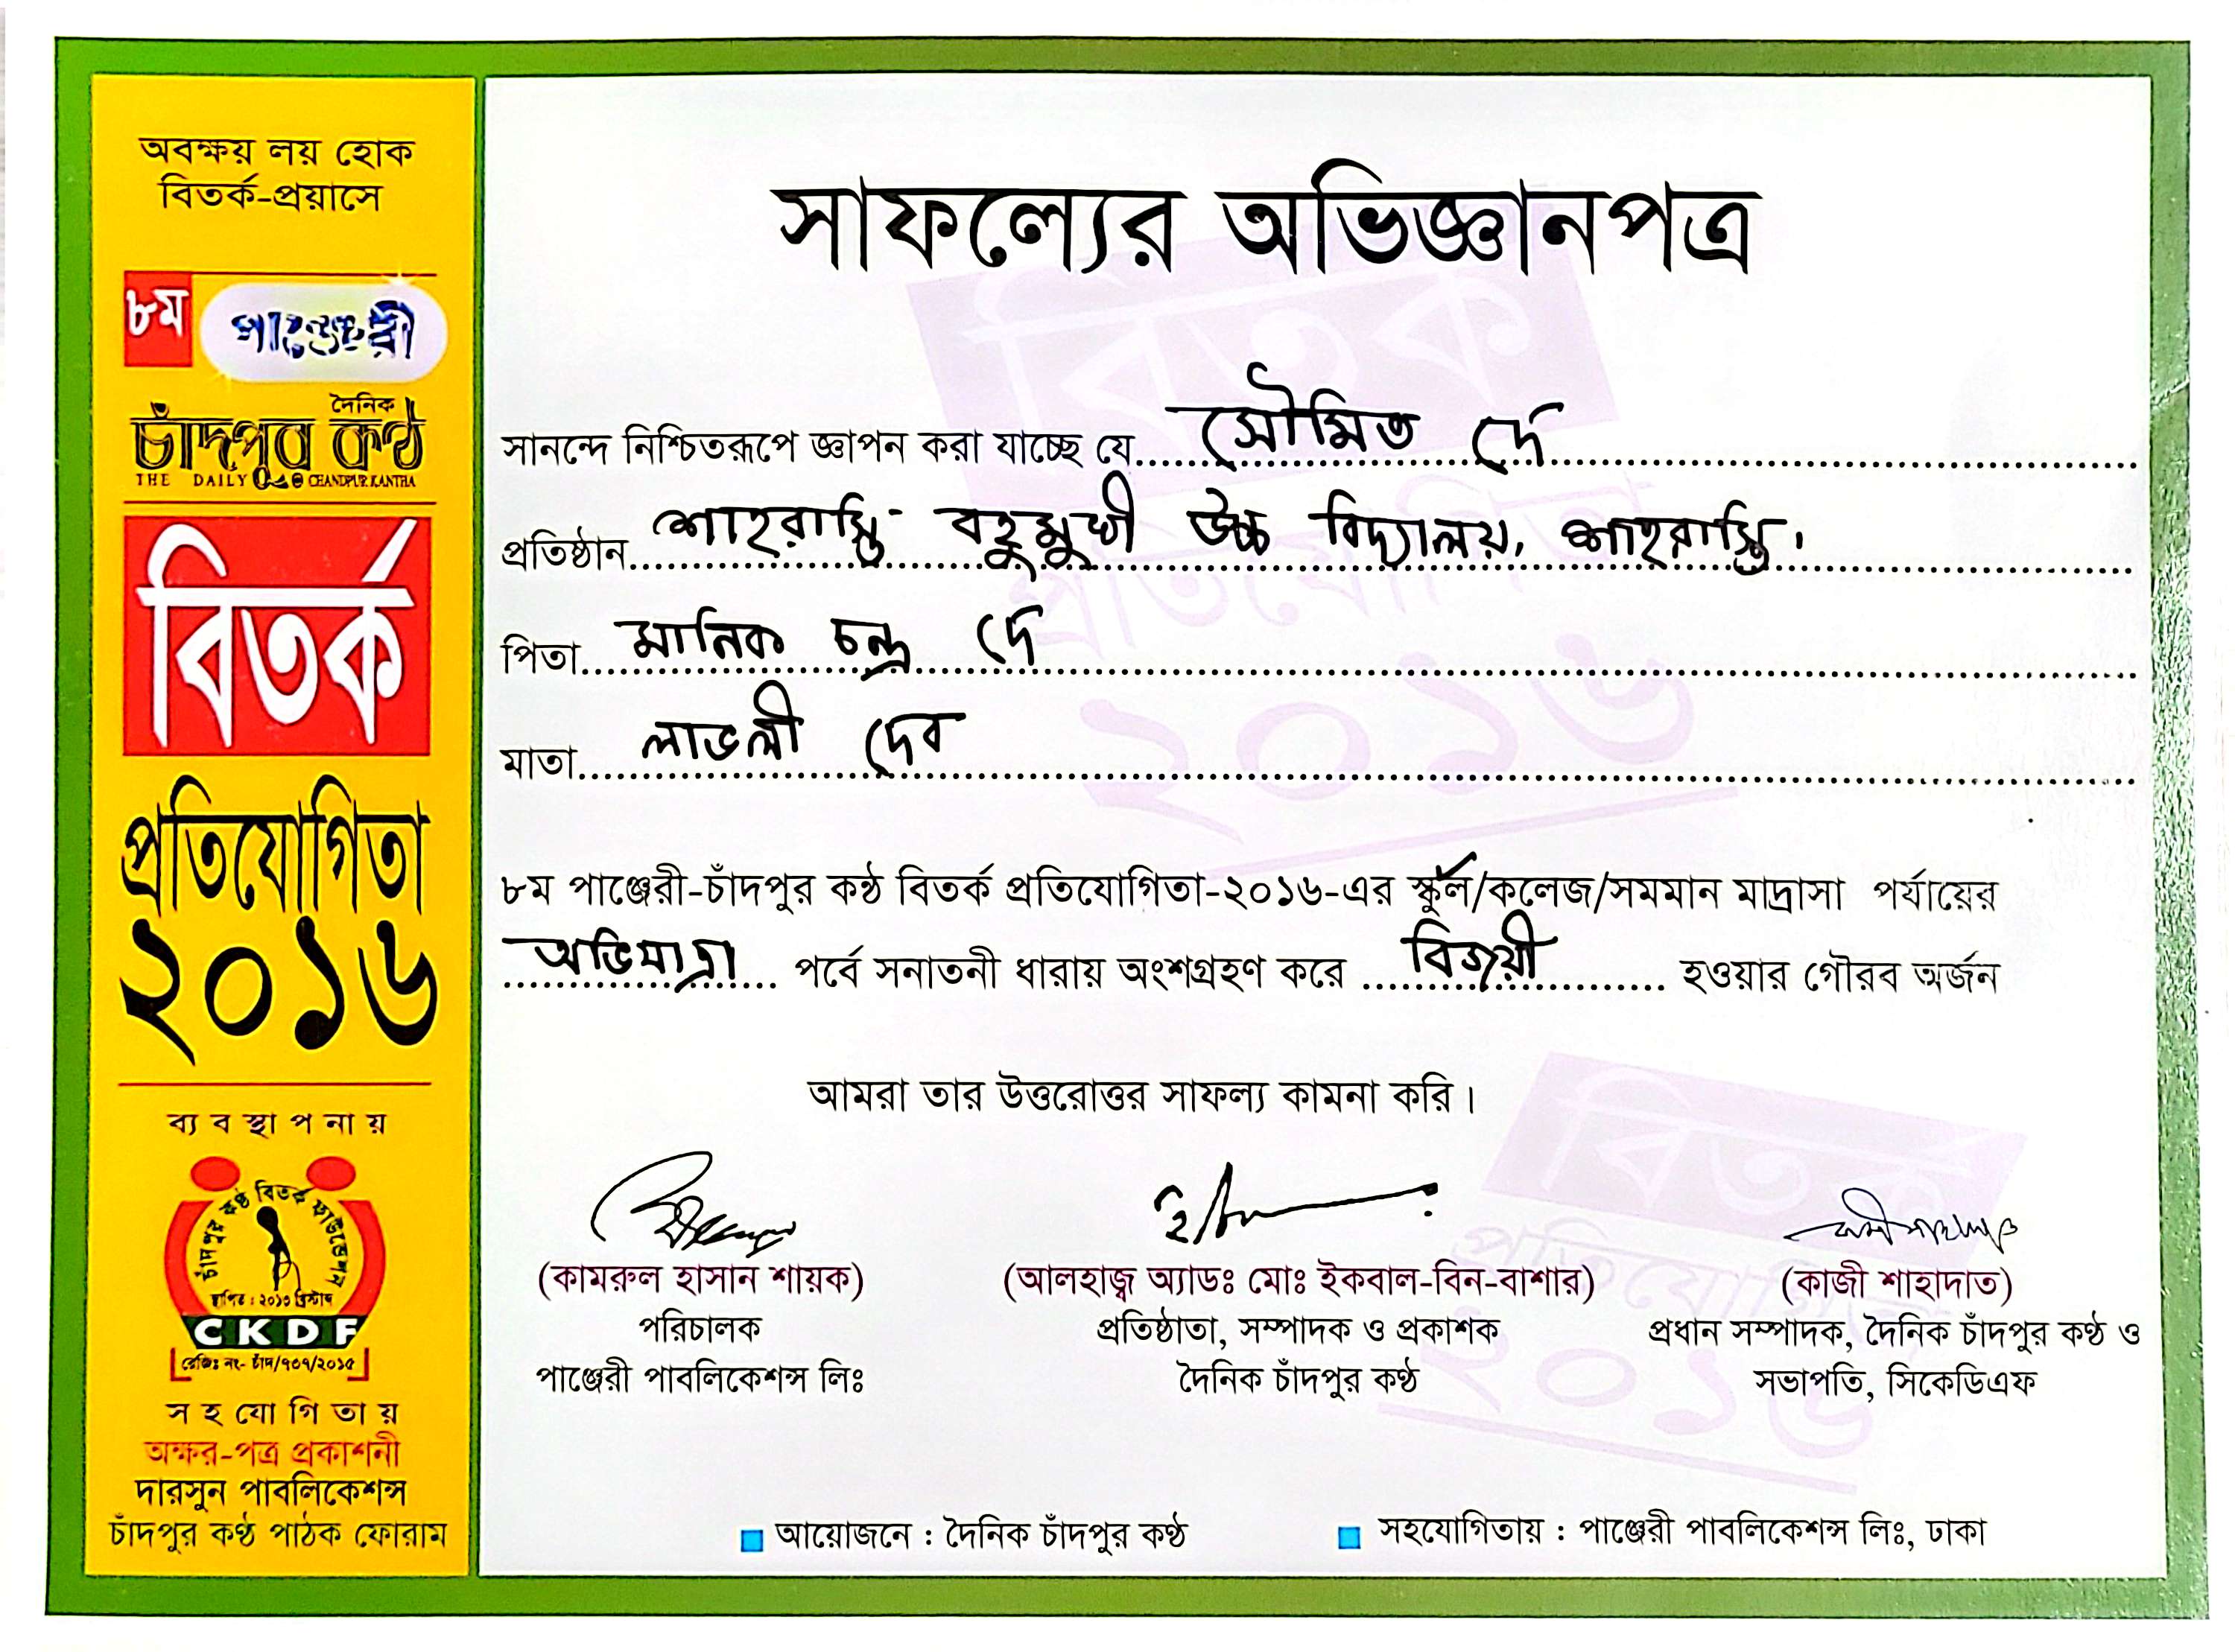 অবক্ষয় লয় হোক
বিতর্ক-প্রয়াসে
৮ম পাঞ্জেরী
দৈনিক
চাঁদপুর কণ্ঠ
THE DAILY CHANDPUR KANTHA
বিতর্ক
প্রতিযোগিতা
২০১৬
ব্যবস্থাপনায়
চাঁদপুর কণ্ঠ বিতর্ক ফাউন্ডেশন
স্থাপিত : ২০১৩ খ্রিস্টাব্দ
CKDF
রেজিঃ নং- চাঁদ/৭৩৭/২০১৫
সহযোগিতায়
অক্ষর-পত্র প্রকাশনী
দারসুন পাবলিকেশন্স
চাঁদপুর কণ্ঠ পাঠক ফোরাম
সাফল্যের অভিজ্ঞানপত্র
সানন্দে নিশ্চিতরূপে জ্ঞাপন করা যাচ্ছে যে সৌমিত দে
প্রতিষ্ঠান শাহরাস্তি বহুমুখী উচ্চ বিদ্যালয়, শাহরাস্তি।
পিতা মানিক চন্দ্র দে
মাতা লাভলী দেব
৮ম পাঞ্জেরী-চাঁদপুর কন্ঠ বিতর্ক প্রতিযোগিতা-২০১৬-এর স্কুল/কলেজ/সমমান মাদ্রাসা পর্যায়ের
অভিযাত্রা পর্বে সনাতনী ধারায় অংশগ্রহণ করে বিজয়ী হওয়ার গৌরব অর্জন
আমরা তার উত্তরোত্তর সাফল্য কামনা করি।
(কামরুল হাসান শায়ক)
পরিচালক
পাঞ্জেরী পাবলিকেশন্স লিঃ
(আলহাজ্ব অ্যাডঃ মোঃ ইকবাল-বিন-বাশার)
প্রতিষ্ঠাতা, সম্পাদক ও প্রকাশক
দৈনিক চাঁদপুর কণ্ঠ
(কাজী শাহাদাত)
প্রধান সম্পাদক, দৈনিক চাঁদপুর কণ্ঠ ও
সভাপতি, সিকেডিএফ
আয়োজনে : দৈনিক চাঁদপুর কণ্ঠ
সহযোগিতায় : পাঞ্জেরী পাবলিকেশন্স লিঃ, ঢাকা